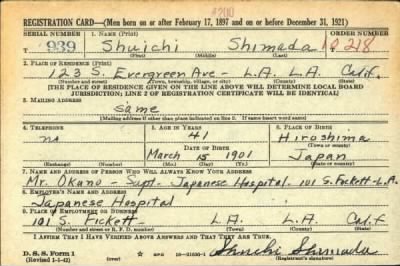 REGISTRATION CARD—(Men born on or after February 17, 1897 and on or before December 31, 1921)
SERIAL NUMBER 1. NAME (Print) ORDER NUMBER
T 939 Shuichi Shimada 10218
(First) (Middle) (Last)
2. PLACE OF RESIDENCE (Print)
123 S. Evergreen Ave - L.A. L.A. Calif.
(Number and street) (Town, township, village, or city) (County) (State)
[THE PLACE OF RESIDENCE GIVEN ON THE LINE ABOVE WILL DETERMINE LOCAL BOARD
JURISDICTION; LINE 2 OF REGISTRATION CERTIFICATE WILL BE IDENTICAL]
3. MAILING ADDRESS
Same
[Mailing address if other than place indicated on line 2. If same insert word same]
4. TELEPHONE 5. AGE IN YEARS 6. PLACE OF BIRTH
no 41 Hiroshima
DATE OF BIRTH (Town or county)
March 15 1901 Japan
(Exchange) (Number) (Mo.) (Day) (Yr.) (State or country)
7. NAME AND ADDRESS OF PERSON WHO WILL ALWAYS KNOW YOUR ADDRESS
Mr. Okuno Supt- Japanese Hospital - 101 S. Fickett-L.A.
8. EMPLOYER'S NAME AND ADDRESS
Japanese Hospital
9. PLACE OF EMPLOYMENT OR BUSINESS
101 S. Fickett- L.A. L.A. Calif.
(Number and street or R. F. D. number) (Town) (County) (State)
I AFFIRM THAT I HAVE VERIFIED ABOVE ANSWERS AND THAT THEY ARE TRUE.
D. S. S. Form 1
(Revised 1-1-42) (over) Shuichi Shimada
(Registrant's signature)